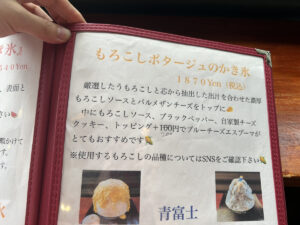 もろこしポタージュのかき氷
1870Yen（税込）
厳選したうもろこしと芯から抽出した出汁を合わせた濃厚
もろこしソースとパルメザンチーズをトップに
中にもろこしソース、ブラックペッパー、自家製チーズ
クッキー、トッピング+100円でブルーチーズエスプーマが
とてもおすすめです
※使用するもろこしの品種についてはSNSをご確認下さい
青富士
き氷』
840Yen
表面と